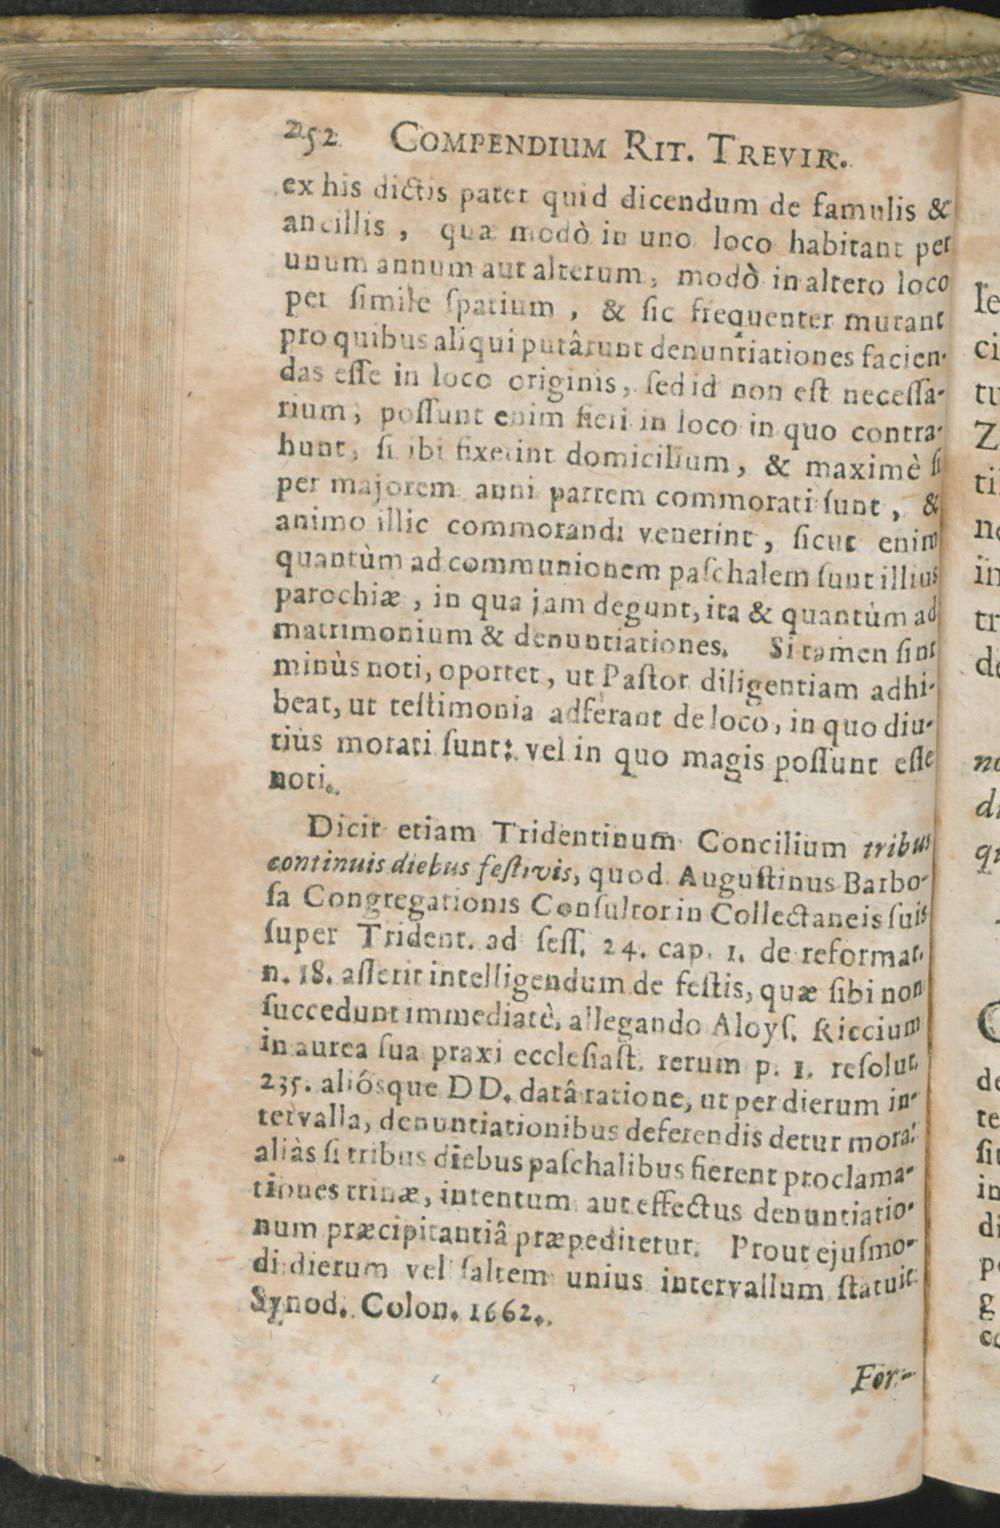 252 COMPENDIUM RIT. TREVIR.
ex his dictis patet quid dicendum de famulis &
ancillis, quæ modò in uno loco habitant per
unum annum aut alterum, modò in altero loco
per ſimile ſpatium, & ſic frequenter mutant
pro quibus aliqui putârunt denuntiationes facien-
das eſſe in loco originis, ſed id non eſt neceſſa-
rium, poſſunt enim fieri in loco in quo contra-
hunt, ſi ibi fixerint domicilium, & maximè ſi
per majorem anni partem commorati ſunt, &
animo illic commorandi venerint, ſicut enim
quantùm ad communionem paſchalem ſunt illius
parochiæ, in qua jam degunt, ita & quantùm ad
matrimonium & denuntiationes. Si tamen ſint
minùs noti, oportet, ut Paſtor diligentiam adhi-
beat, ut teſtimonia adferant de loco, in quo diu-
tiùs morati ſunt: vel in quo magis poſſunt eſſe
noti.
Dicit etiam Tridentinum Concilium tribus
continuis diebus feſtivis, quod Auguſtinus Barbo-
ſa Congregationis Conſultor in Collectaneis ſuis
ſuper Trident. ad ſeſſ. 24. cap. 1. de reformat.
n. 18. aſſerit intelligendum de feſtis, quæ ſibi non
ſuccedunt immediatè, allegando Aloyſ. Riccium
in aurea ſua praxi eccleſiaſt. rerum p. 1. reſolut.
235. aliósque DD. datâ ratione, ut per dierum in-
tervalla, denuntiationibus deferendis detur mora:
aliàs ſi tribus diebus paſchalibus fierent proclama-
tiones trinæ, intentum aut effectus denuntiatio-
num præcipitantiâ præpediretur. Prout ejuſmo-
di dierum vel ſaltem unius intervallum ſtatuit
Synod. Colon. 1662.
For-